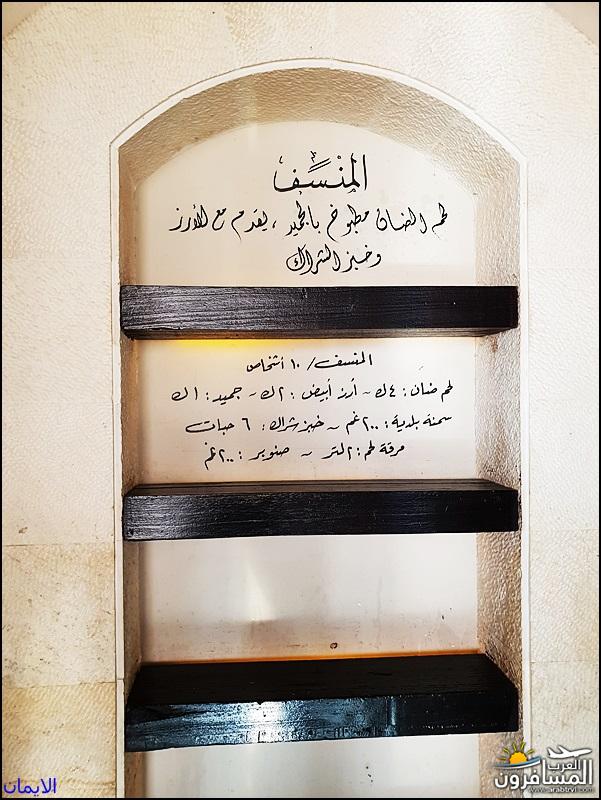 المنسف
لحم الضان مطبوخ بالجميد ، يقدم مع الأرز
وخبز الشراك
المنسف / ١٠ أشخاص
لحم ضان : ٤ ك ~ أرز أبيض : ٢ ك ~ جميد : ١ ك
سمنة بلدية : ٢٠٠ غم ~ خبز شراك : ٦ حبات
مرقة لحم : ٢ لتر ~ صنوبر : ٢٠٠ غم
الايمان
العرب
المسافرون
www.arabtrvl.com